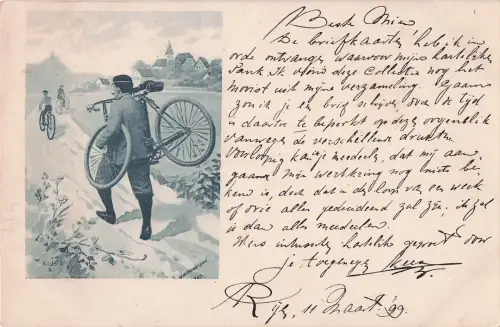 Beste Mien
De briefkaarten heb ik in
orde ontvangen waarvoor mijn hartelijke
dank. Ik vond deze Collectie nog het
mooist uit mijne verzameling. Gaarne
zou ik je een brief schrijven doch de tijd
is daartoe te beperkt op dezen oogenblik
vanwege de verschillende drukten
Voorloopig kan je mededeelen, dat mij aan-
gaande mijn werkkring nog niets be-
kend is, doch dat in de loop van een week
of drie alles gedecideerd zal zijn. Ik zal
je dan alles mededeelen.
Thans hartelijk gegroet door
je toegenegen
11 Maart '99.